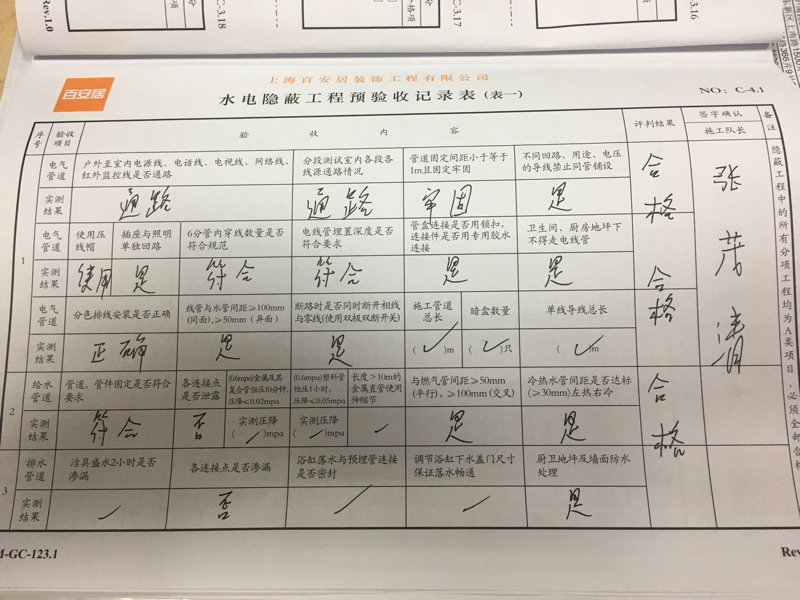 Rev.1.0
C-3.18
C-3.17
3.16
百安居
上海百安居装饰工程有限公司
水电隐蔽工程预验收记录表(表一)
NO: C-4.1
序号
验收项目
验收内容
评判结果
签字确认
施工队长
备注
1
电气管道
户外至室内电源线、电话线、电视线、网络线、
红外监控线是否通路
分段测试室内各段各
线源通路情况
管道固定间距小于等于
1m且固定牢固
不同回路、用途、电压
的导线禁止同管铺设
实测结果
通路
通路
牢固
是
合格
电气管道
使用压
线帽
插座与照明
单独回路
6分管内穿线数量是否
符合规范
电线管埋置深度是否
符合要求
管盒连接是否用锁扣,
连接件是否用专用胶水
连接
卫生间、厨房地坪下
不得走电线管
实测结果
使用
是
符合
符合
是
是
合格
电气管道
分色排线安装是否正确
线管与水管间距≥100mm
(同面),≥50mm(异面)
断路时是否同时断开相线
与零线(使用双极双断开关)
施工管道
总长
暗盒数量
单线导线总长
实测结果
正确
是
是
(✓)m
(✓)只
(✓)m
2
给水管道
管道、管件固定是否符合
要求
各连接点
是否泄露
(0.6mpa)金属及其
复合管恒压10分钟,
压降≤0.02mpa
(0.6mpa)塑料管
恒压1小时,
压降≤0.05mpa
长度>10m的
金属直管使用
伸缩节
与燃气管间距≥50mm
(平行),≥100mm(交叉)
冷热水管间距是否达标
(≥30mm)左热右冷
实测结果
符合
否
实测压降
( )mpa
实测压降
( )mpa
是
是
合格
3
排水管道
洁具盛水2小时是否
渗漏
各连接点是否渗漏
浴缸落水与预埋管连接
是否密封
调节浴缸下水盖门尺寸
保证落水畅通
厨卫地坪及墙面防水
处理
实测结果
否
是
张茂
隐蔽工程中的所有分项工程均为A类项目,必须全部合
M-GC-123.1
Rev